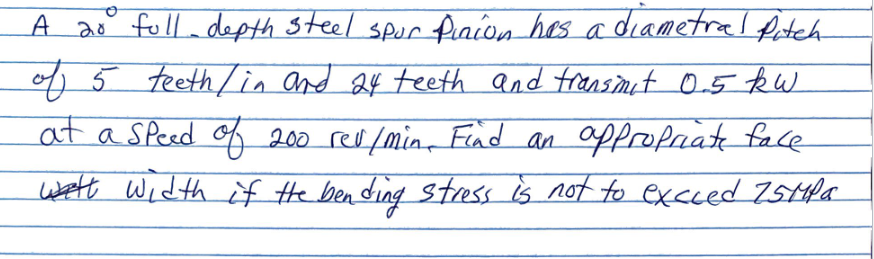 A 20° full-depth steel spur pinion has a diametral pitch
of 5 teeth/in and 24 teeth and transmit 0.5 kW
at a speed of 200 rev/min. Find an appropriate face
width if the bending stress is not to exceed 75MPa